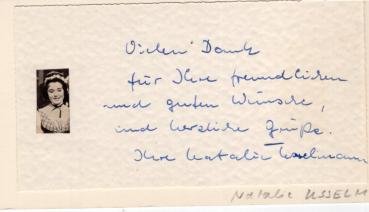 Vielen Dank
für Ihre freundlichen
und guten Wünsche,
und herzliche Grüße.
Ihre Natalia Usselmann
Natalie USSELM